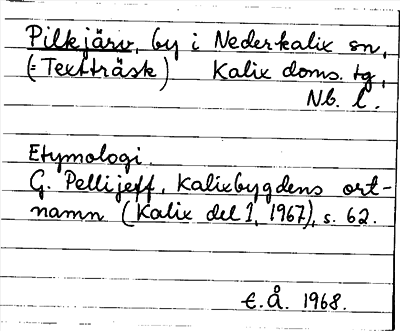 Pilkjärv, by i Nederkalix sn,
(= Textträsk) Kalix doms. tg,
Nb. l.
Etymologi.
G. Pellijeff, Kalixbygdens ort-
namn (Kalix del 1, 1967), s. 62.
E.Å. 1968.